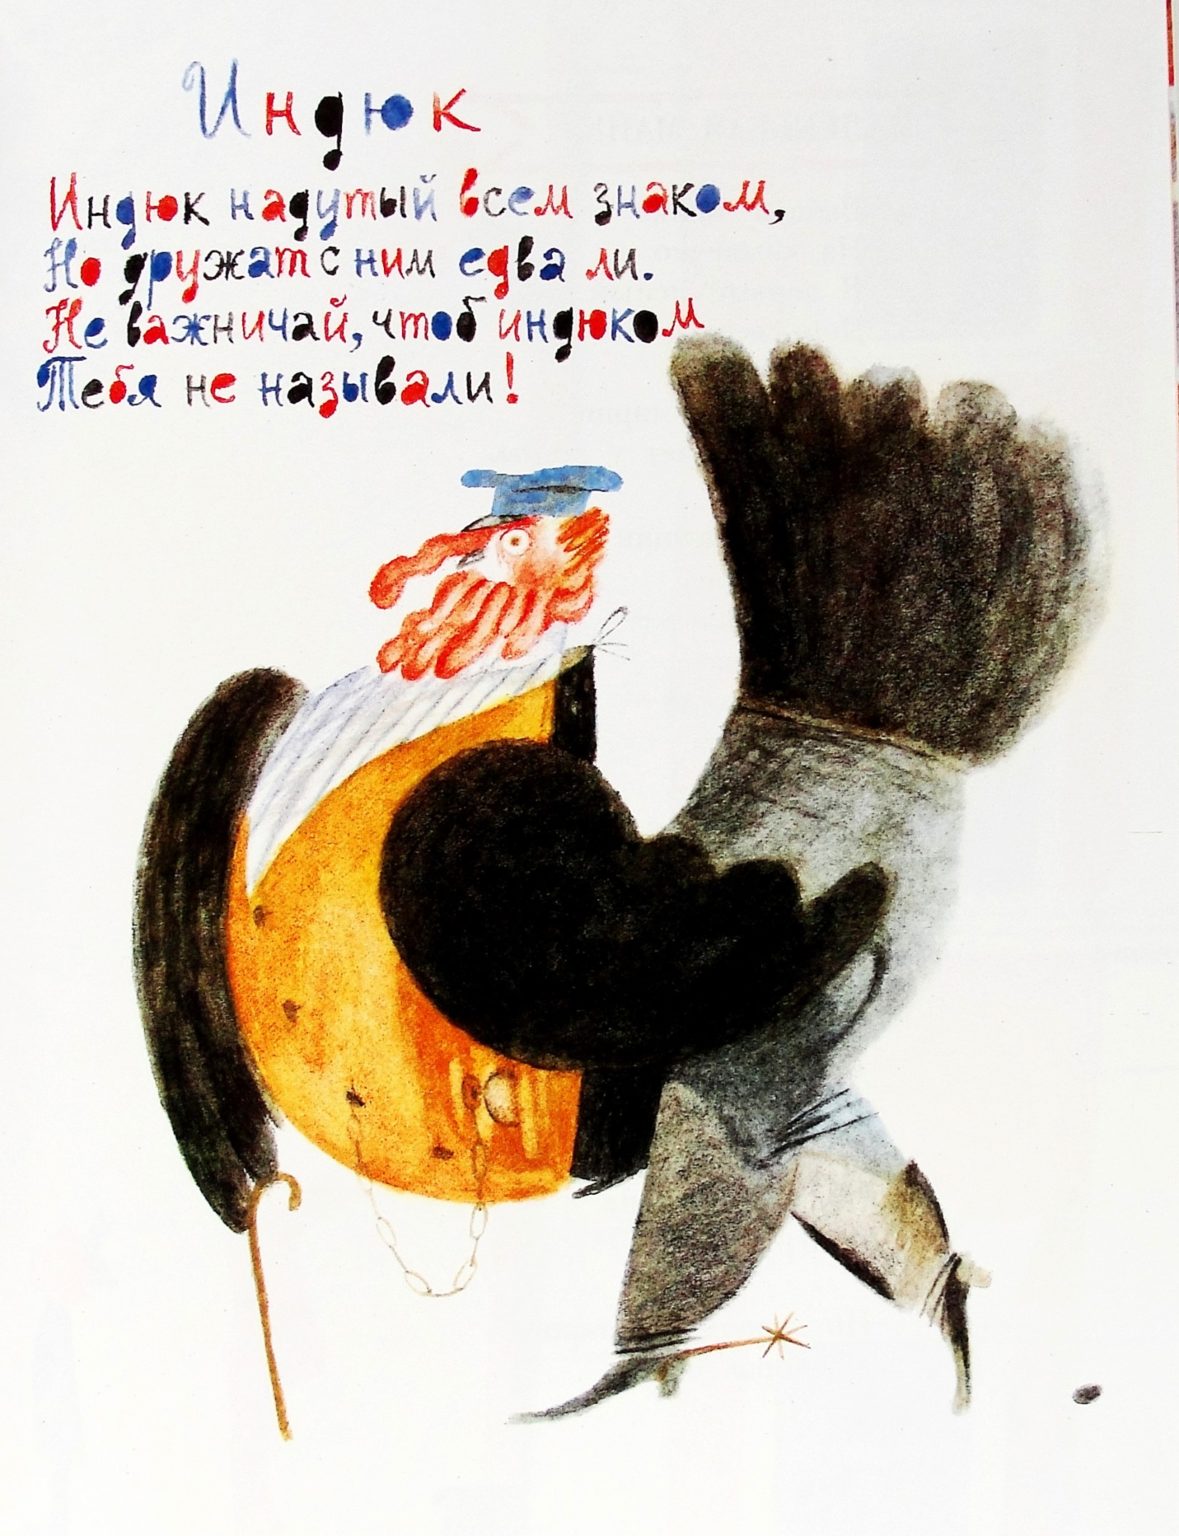 Индюк
Индюк надутый всем знаком,
Но дружат с ним едва ли.
Не важничай, чтоб индюком
Тебя не называли!